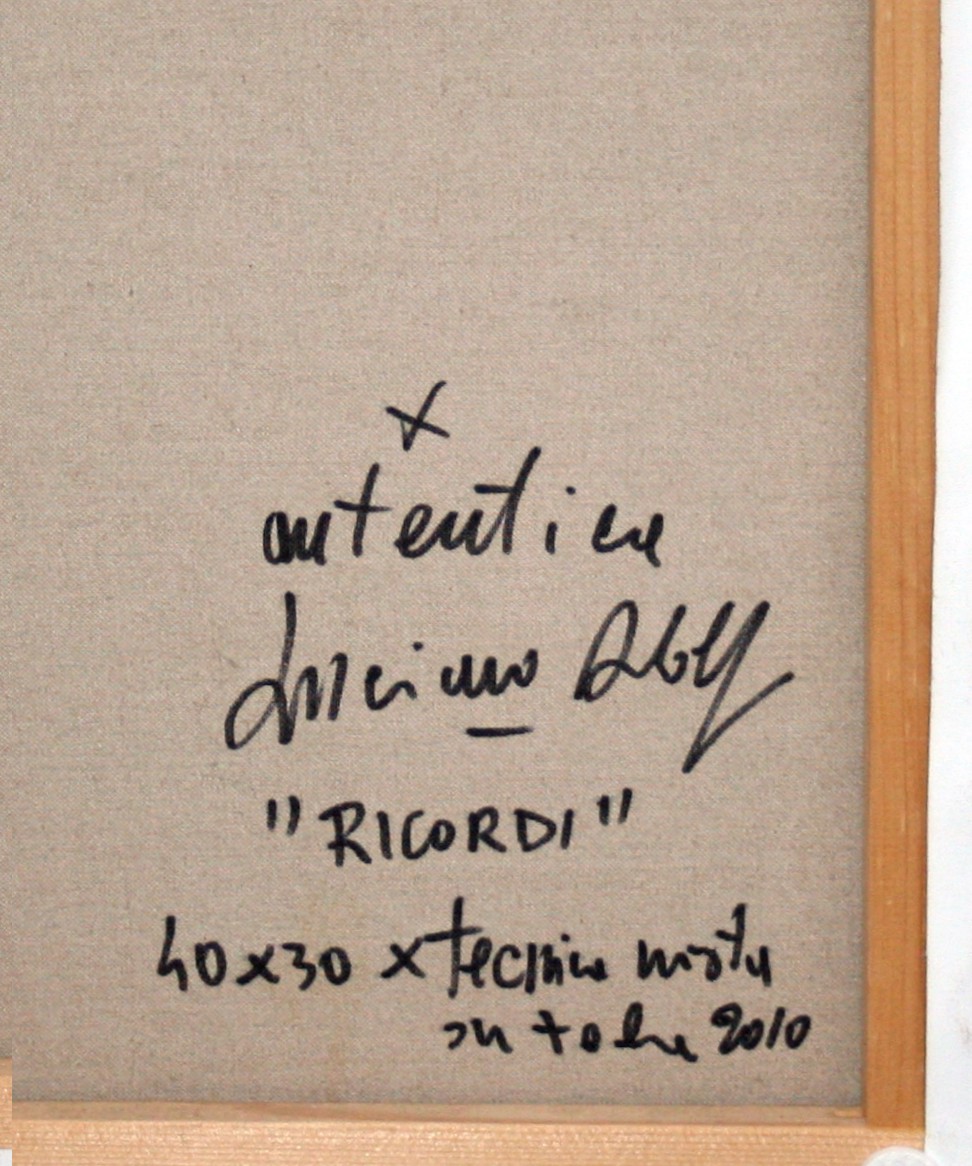 x
autentica
Luciano
"RICORDI"
40x30 x tecnica mista
su tela 2010